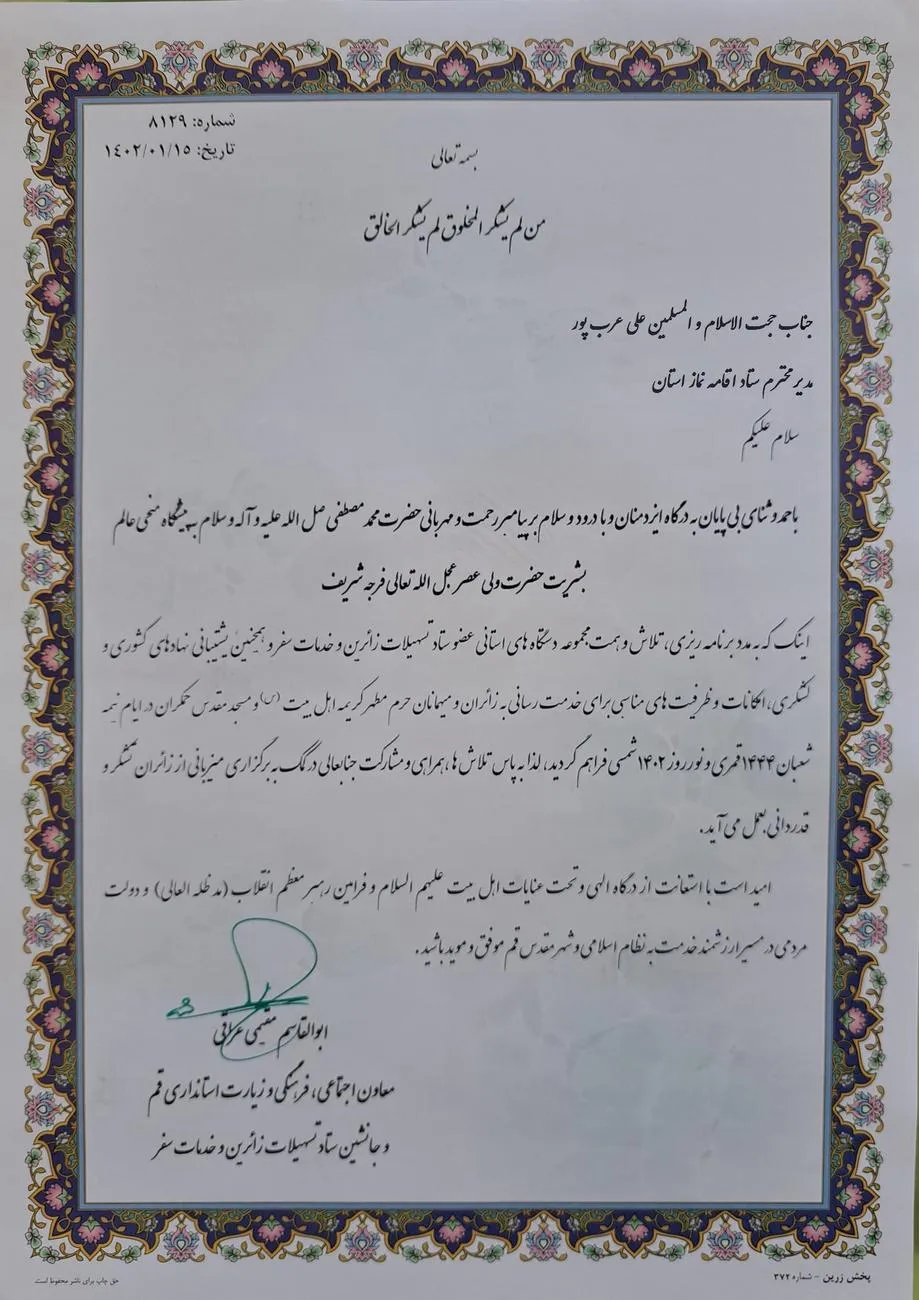 شماره: ۸۱۲۹
تاریخ: ۱٤۰۲/۰۱/۱٥
بسمه تعالی
من لم یشکر المخلوق لم یشکر الخالق
جناب حجت الاسلام و المسلمین علی عرب پور
مدیر محترم ستاد اقامه نماز استان
سلام علیکم
باحمد و ثنای بی پایان به درگاه ایزد منان و با درود و سلام بر پیامبر رحمت و مهربانی حضرت محمد مصطفی صل الله علیه و آله و سلام به پیشگاه منجی عالم
بشریت حضرت ولی عصر عجل الله تعالی فرجه شریف
اینک که به مدد برنامه ریزی، تلاش و همت مجموعه دستگاه های استانی عضو ستاد تسهیلات زائرین و خدمات سفر و همچنین پشتیبانی نهادهای کشوری و
لشکری، امکانات و ظرفیت های مناسبی برای خدمت رسانی به زائران و میهمانان حرم مطهر کریمه اهل بیت (س) و مسجد مقدس جمکران در ایام نیمه
شعبان ۱۴۴۴ قمری و نوروز ۱۴۰۲ شمسی فراهم گردید، لذا به پاس تلاش ها، همراهی و مشارکت جنابعالی در کمک به برگزاری میزبانی از زائران تشکر و
قدردانی بعمل می آید.
امید است با استعانت از درگاه الهی و تحت عنایات اهل بیت علیهم السلام و فرامین رهبر معظم انقلاب (مد ظله العالی) و دولت
مردمی در مسیر ارزشمند خدمت به نظام اسلامی و شهر مقدس قم موفق و موید باشید.
ابوالقاسم مقیمی عراقی
معاون اجتماعی، فرهنگی و زیارت استانداری قم
و جانشین ستاد تسهیلات زائرین و خدمات سفر
پخش زرین - شماره ۳۷۲
حق چاپ برای ناشر محفوظ است